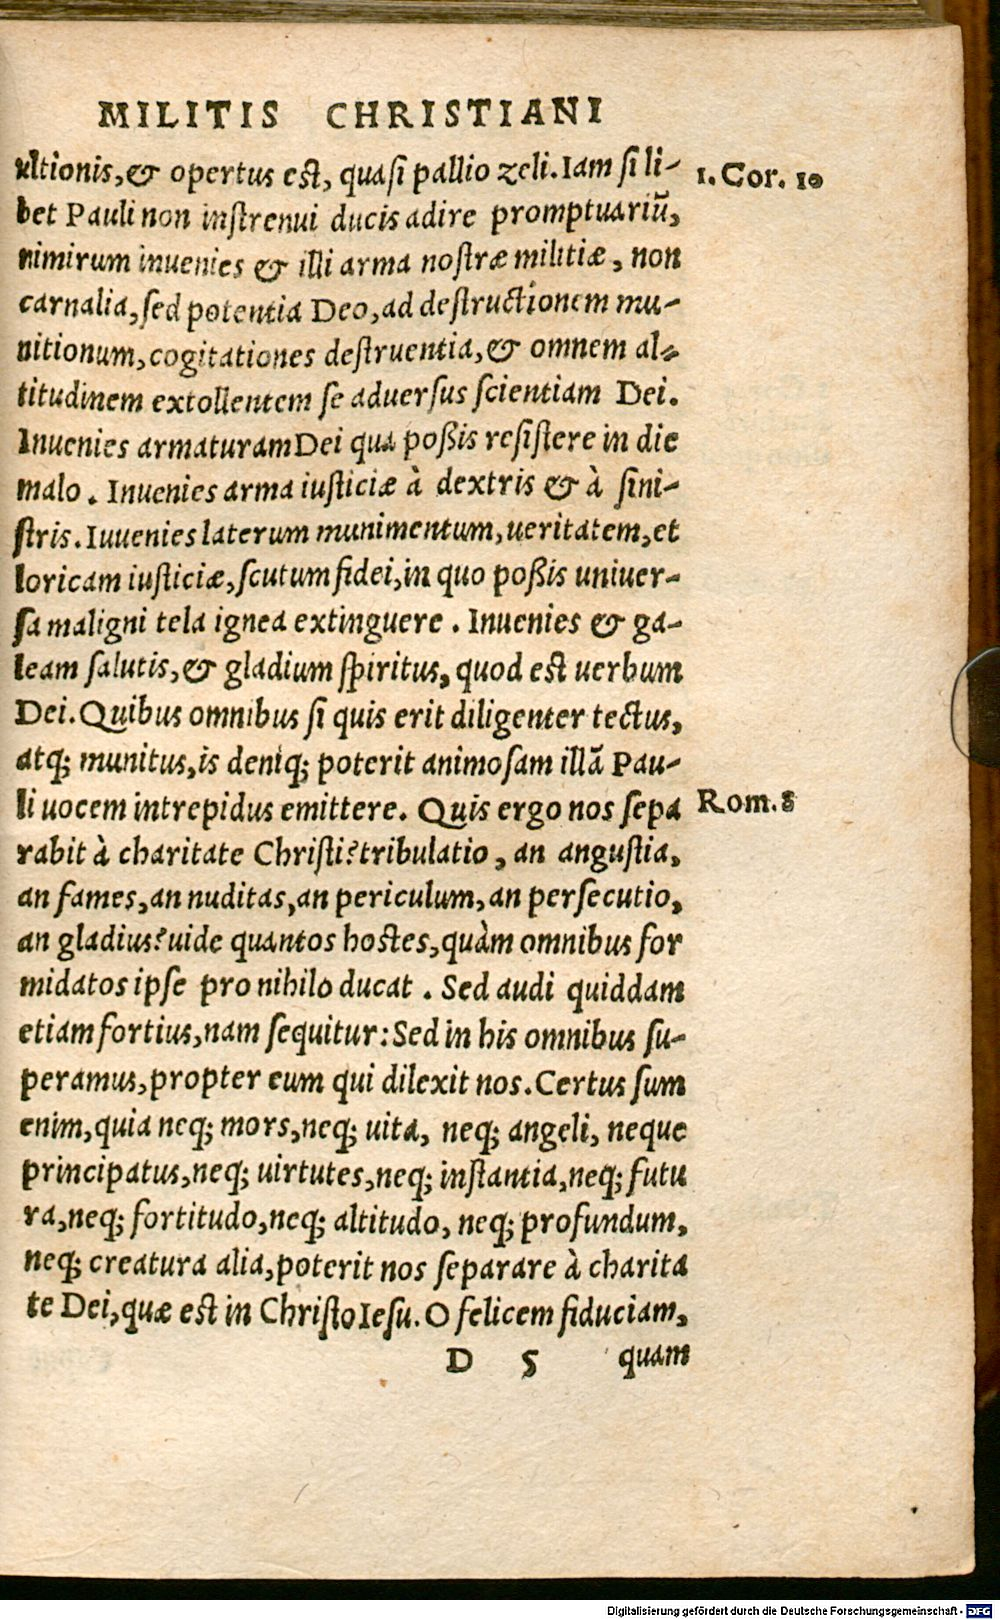 MILITIS CHRISTIANI
ultionis, & opertus est, quasi pallio zeli. Iam si li-
bet Pauli non instrenui ducis adire promptuariū,
nimirum inuenies & illi arma nostræ militiæ, non
carnalia, sed potentia Deo, ad destructionem mu-
nitionum, cogitationes destruentia, & omnem al-
titudinem extollentem se aduersus scientiam Dei.
Inuenies armaturam Dei qua poßis resistere in die
malo. Inuenies arma iusticiæ à dextris & à sini-
stris. Iuuenies laterum munimentum, ueritatem, et
loricam iusticiæ, scutum fidei, in quo poßis uniuer-
sa maligni tela ignea extinguere. Inuenies & ga-
leam salutis, & gladium spiritus, quod est uerbum
Dei. Quibus omnibus si quis erit diligenter tectus,
atq; munitus, is deniq; poterit animosam illā Pau-
li uocem intrepidus emittere. Quis ergo nos sepa
rabit à charitate Christi? tribulatio, an angustia,
an fames, an nuditas, an periculum, an persecutio,
an gladius? uide quantos hostes, quàm omnibus for
midatos ipse pro nihilo ducat. Sed audi quiddam
etiam fortius, nam sequitur: Sed in his omnibus su-
peramus, propter eum qui dilexit nos. Certus sum
enim, quia neq; mors, neq; uita, neq; angeli, neque
principatus, neq; uirtutes, neq; instantia, neq; futu
ra, neq; fortitudo, neq; altitudo, neq; profundum,
neq; creatura alia, poterit nos separare à charita
te Dei, quæ est in Christo Iesu. O felicem fiduciam,
D 5 quam
1. Cor. 10
Rom. 8
Digitalisierung gefördert durch die Deutsche Forschungsgemeinschaft - DFG